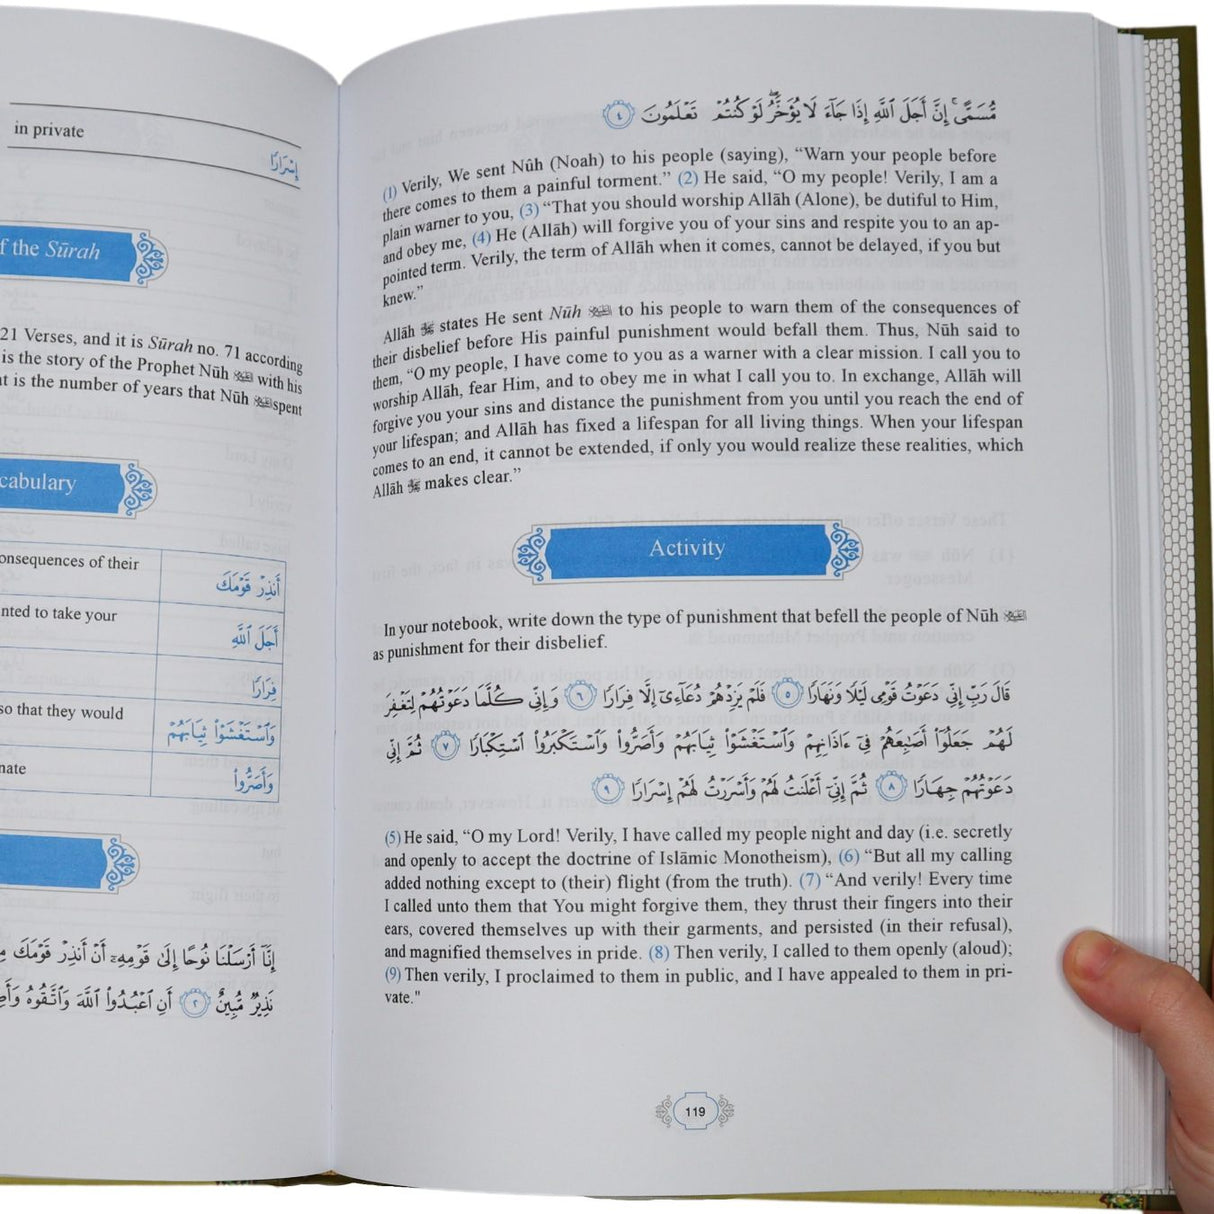 in private
إِسْرَارًا
f the Sūrah
21 Verses, and it is Sūrah no. 71 according
is the story of the Prophet Nūh with his
t is the number of years that Nūh spent
cabulary
onsequences of their
أَنذِرْ قَوْمَكَ
nted to take your
أَجَلَ ٱللَّهِ
فِرَارًا
so that they would
وَٱسْتَغْشَوْا۟ ثِيَابَهُمْ
nate
وَأَصَرُّوا۟
إِنَّآ أَرْسَلْنَا نُوحًا إِلَىٰ قَوْمِهِۦٓ أَنْ أَنذِرْ قَوْمَكَ
نَذِيرٌ مُّبِينٌ ٢ أَنِ ٱعْبُدُوا۟ ٱللَّهَ وَٱتَّقُوهُ
مُّسَمًّى ۚ إِنَّ أَجَلَ ٱللَّهِ إِذَا جَآءَ لَا يُؤَخَّرُ ۖ لَوْ كُنتُمْ تَعْلَمُونَ ٤
(1) Verily, We sent Nûh (Noah) to his people (saying), “Warn your people before
there comes to them a painful torment.” (2) He said, “O my people! Verily, I am a
plain warner to you, (3) “That you should worship Allāh (Alone), be dutiful to Him,
and obey me, (4) He (Allāh) will forgive you of your sins and respite you to an ap-
pointed term. Verily, the term of Allāh when it comes, cannot be delayed, if you but
knew.”
Allāh states He sent Nūh to his people to warn them of the consequences of
their disbelief before His painful punishment would befall them. Thus, Nūh said to
them, “O my people, I have come to you as a warner with a clear mission. I call you to
worship Allāh, fear Him, and to obey me in what I call you to. In exchange, Allāh will
forgive you your sins and distance the punishment from you until you reach the end of
your lifespan; and Allāh has fixed a lifespan for all living things. When your lifespan
comes to an end, it cannot be extended, if only you would realize these realities, which
Allāh makes clear.”
Activity
In your notebook, write down the type of punishment that befell the people of Nūh
as punishment for their disbelief.
قَالَ رَبِّ إِنِّى دَعَوْتُ قَوْمِى لَيْلًا وَنَهَارًا ٥ فَلَمْ يَزِدْهُمْ دُعَآءِىٓ إِلَّا فِرَارًا ٦ وَإِنِّى كُلَّمَا دَعَوْتُهُمْ لِتَغْفِرَ
لَهُمْ جَعَلُوٓا۟ أَصَٰبِعَهُمْ فِىٓ ءَاذَانِهِمْ وَٱسْتَغْشَوْا۟ ثِيَابَهُمْ وَأَصَرُّوا۟ وَٱسْتَكْبَرُوا۟ ٱسْتِكْبَارًا ٧ ثُمَّ إِنِّى
دَعَوْتُهُمْ جِهَارًا ٨ ثُمَّ إِنِّىٓ أَعْلَنتُ لَهُمْ وَأَسْرَرْتُ لَهُمْ إِسْرَارًا ٩
(5) He said, “O my Lord! Verily, I have called my people night and day (i.e. secretly
and openly to accept the doctrine of Islāmic Monotheism), (6) “But all my calling
added nothing except to (their) flight (from the truth). (7) “And verily! Every time
I called unto them that You might forgive them, they thrust their fingers into their
ears, covered themselves up with their garments, and persisted (in their refusal),
and magnified themselves in pride. (8) Then verily, I called to them openly (aloud);
(9) Then verily, I proclaimed to them in public, and I have appealed to them in pri-
vate."
119